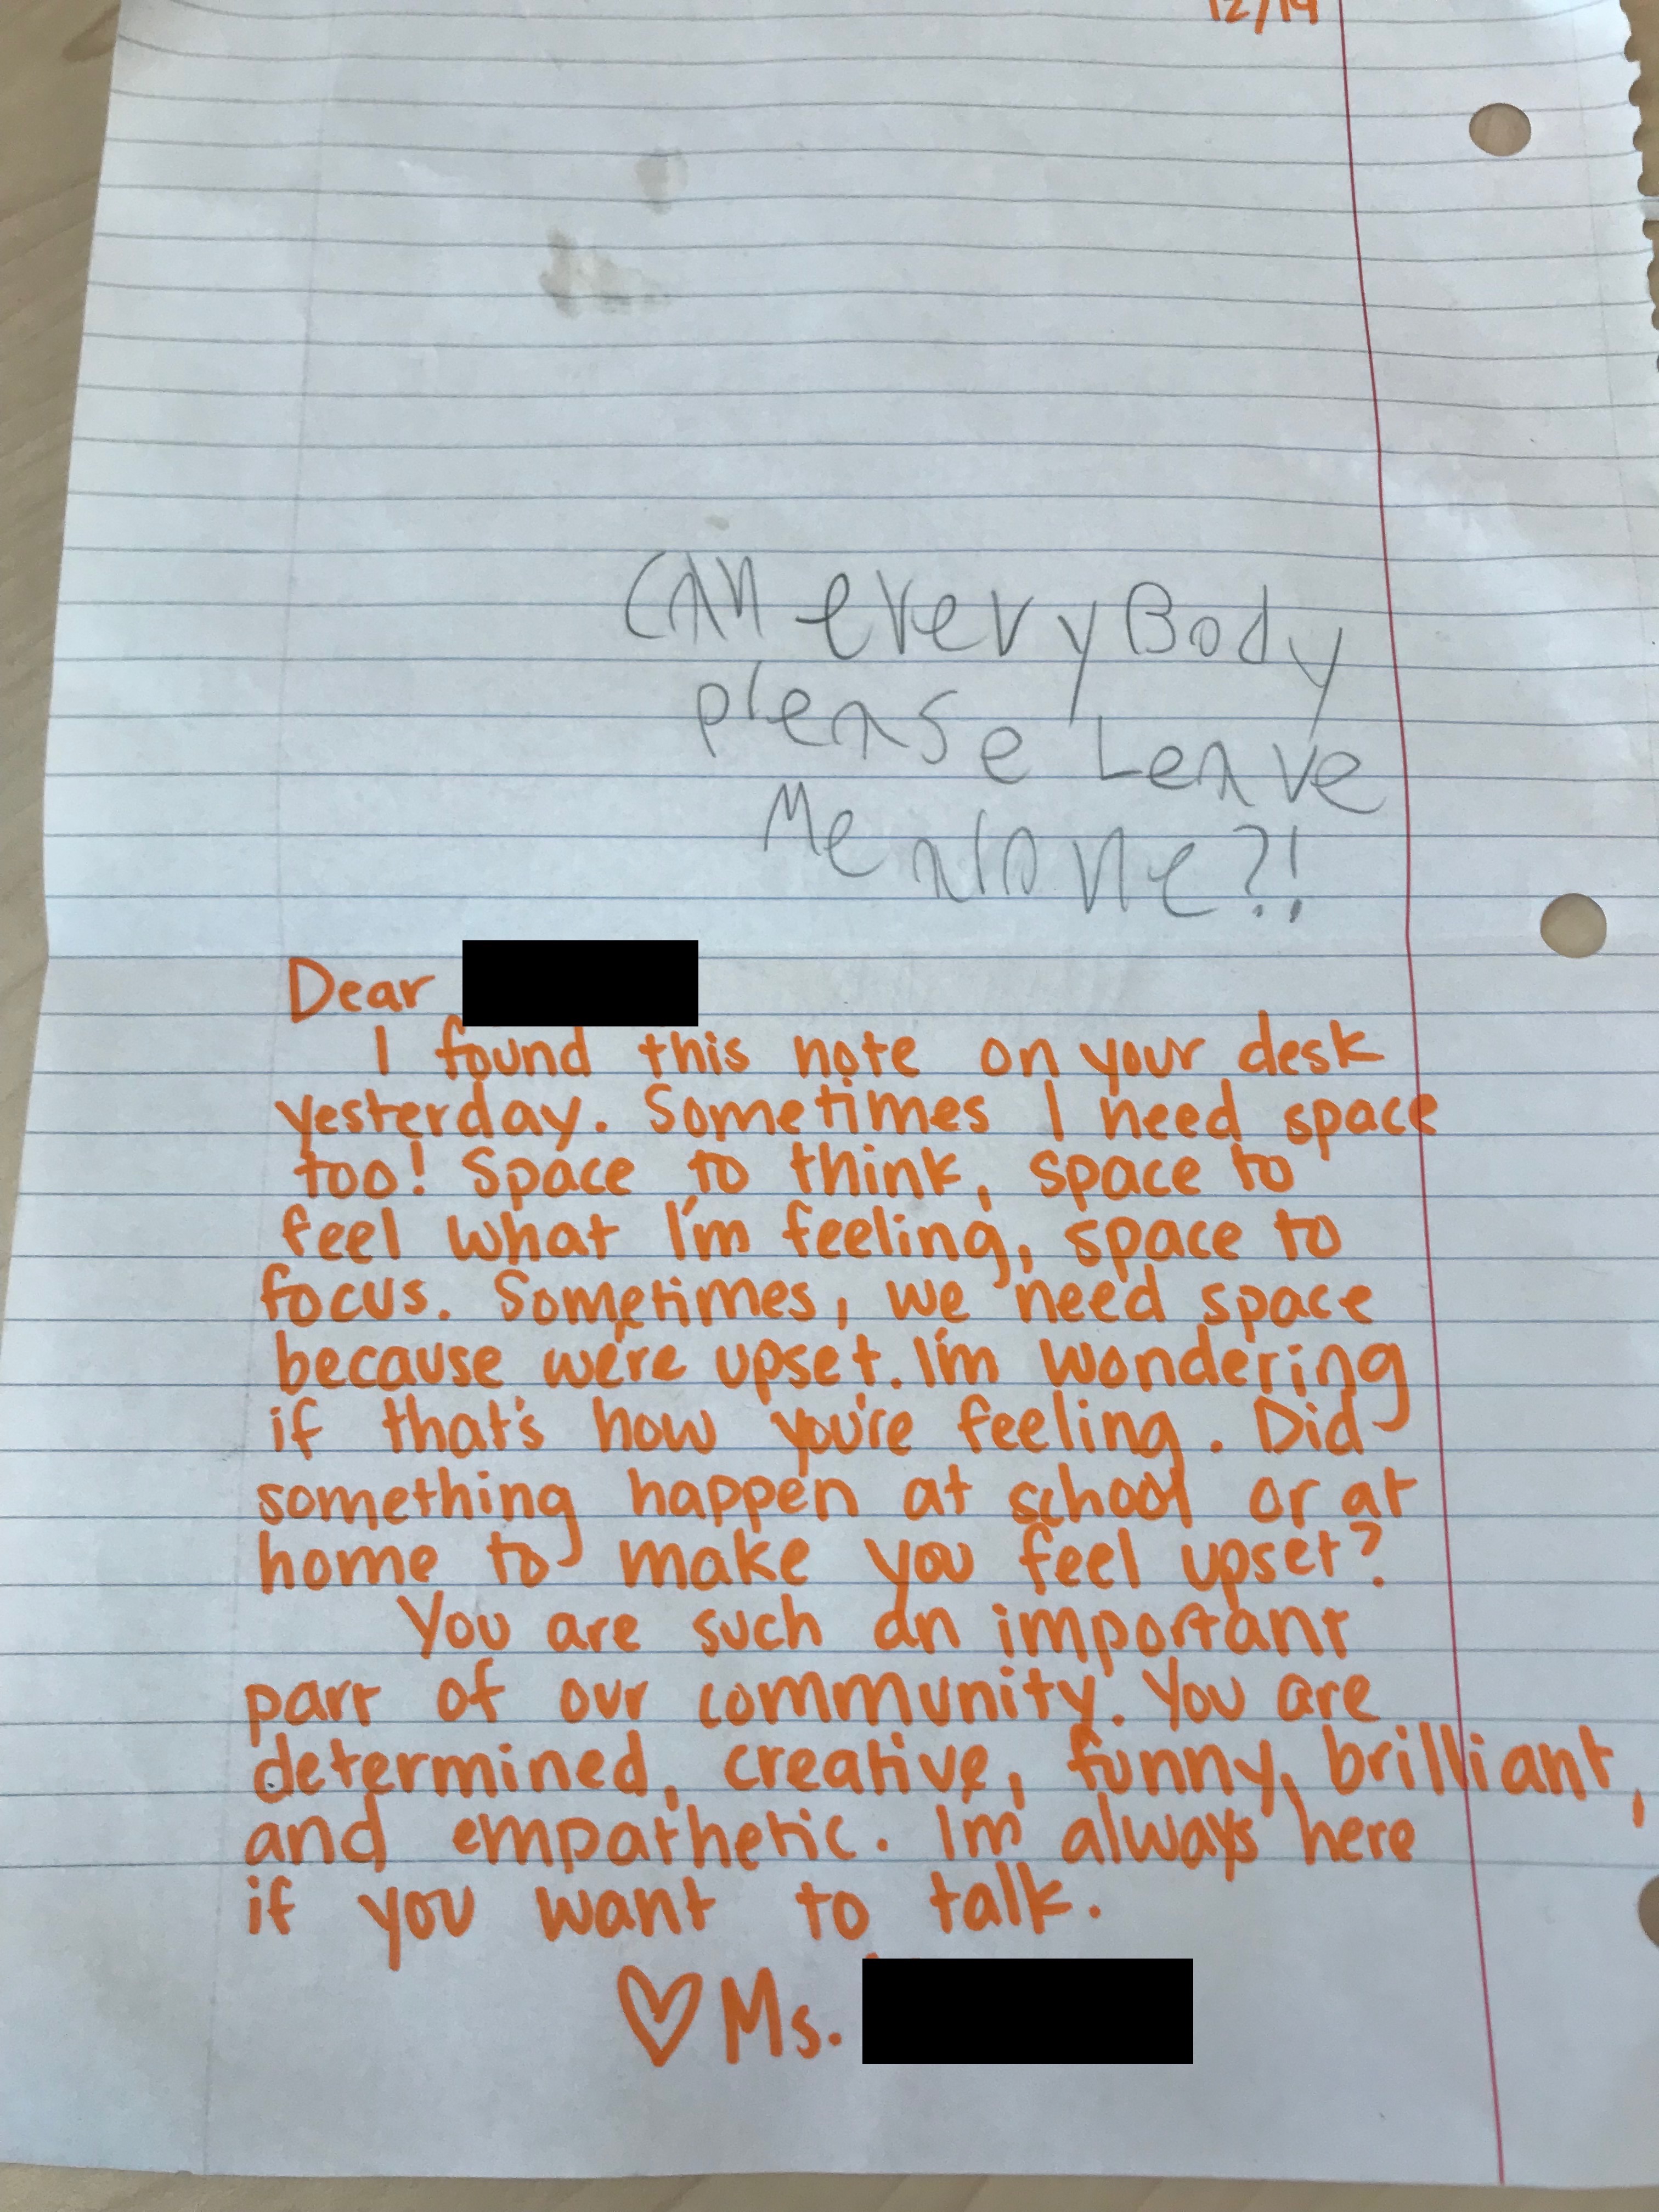 12/19
CAN everyBody
please Leave
Me alone?!
Dear
I found this note on your desk
yesterday. Sometimes I need space
too! Space to think, space to
feel what I'm feeling, space to
focus. Sometimes, we need space
because we're upset. I'm wondering
if that's how you're feeling. Did
something happen at school or at
home to make you feel upset?
You are such an important
part of our community. You are
determined, creative, funny, brilliant,
and empathetic. I'm always here
if you want to talk.
♡ Ms.